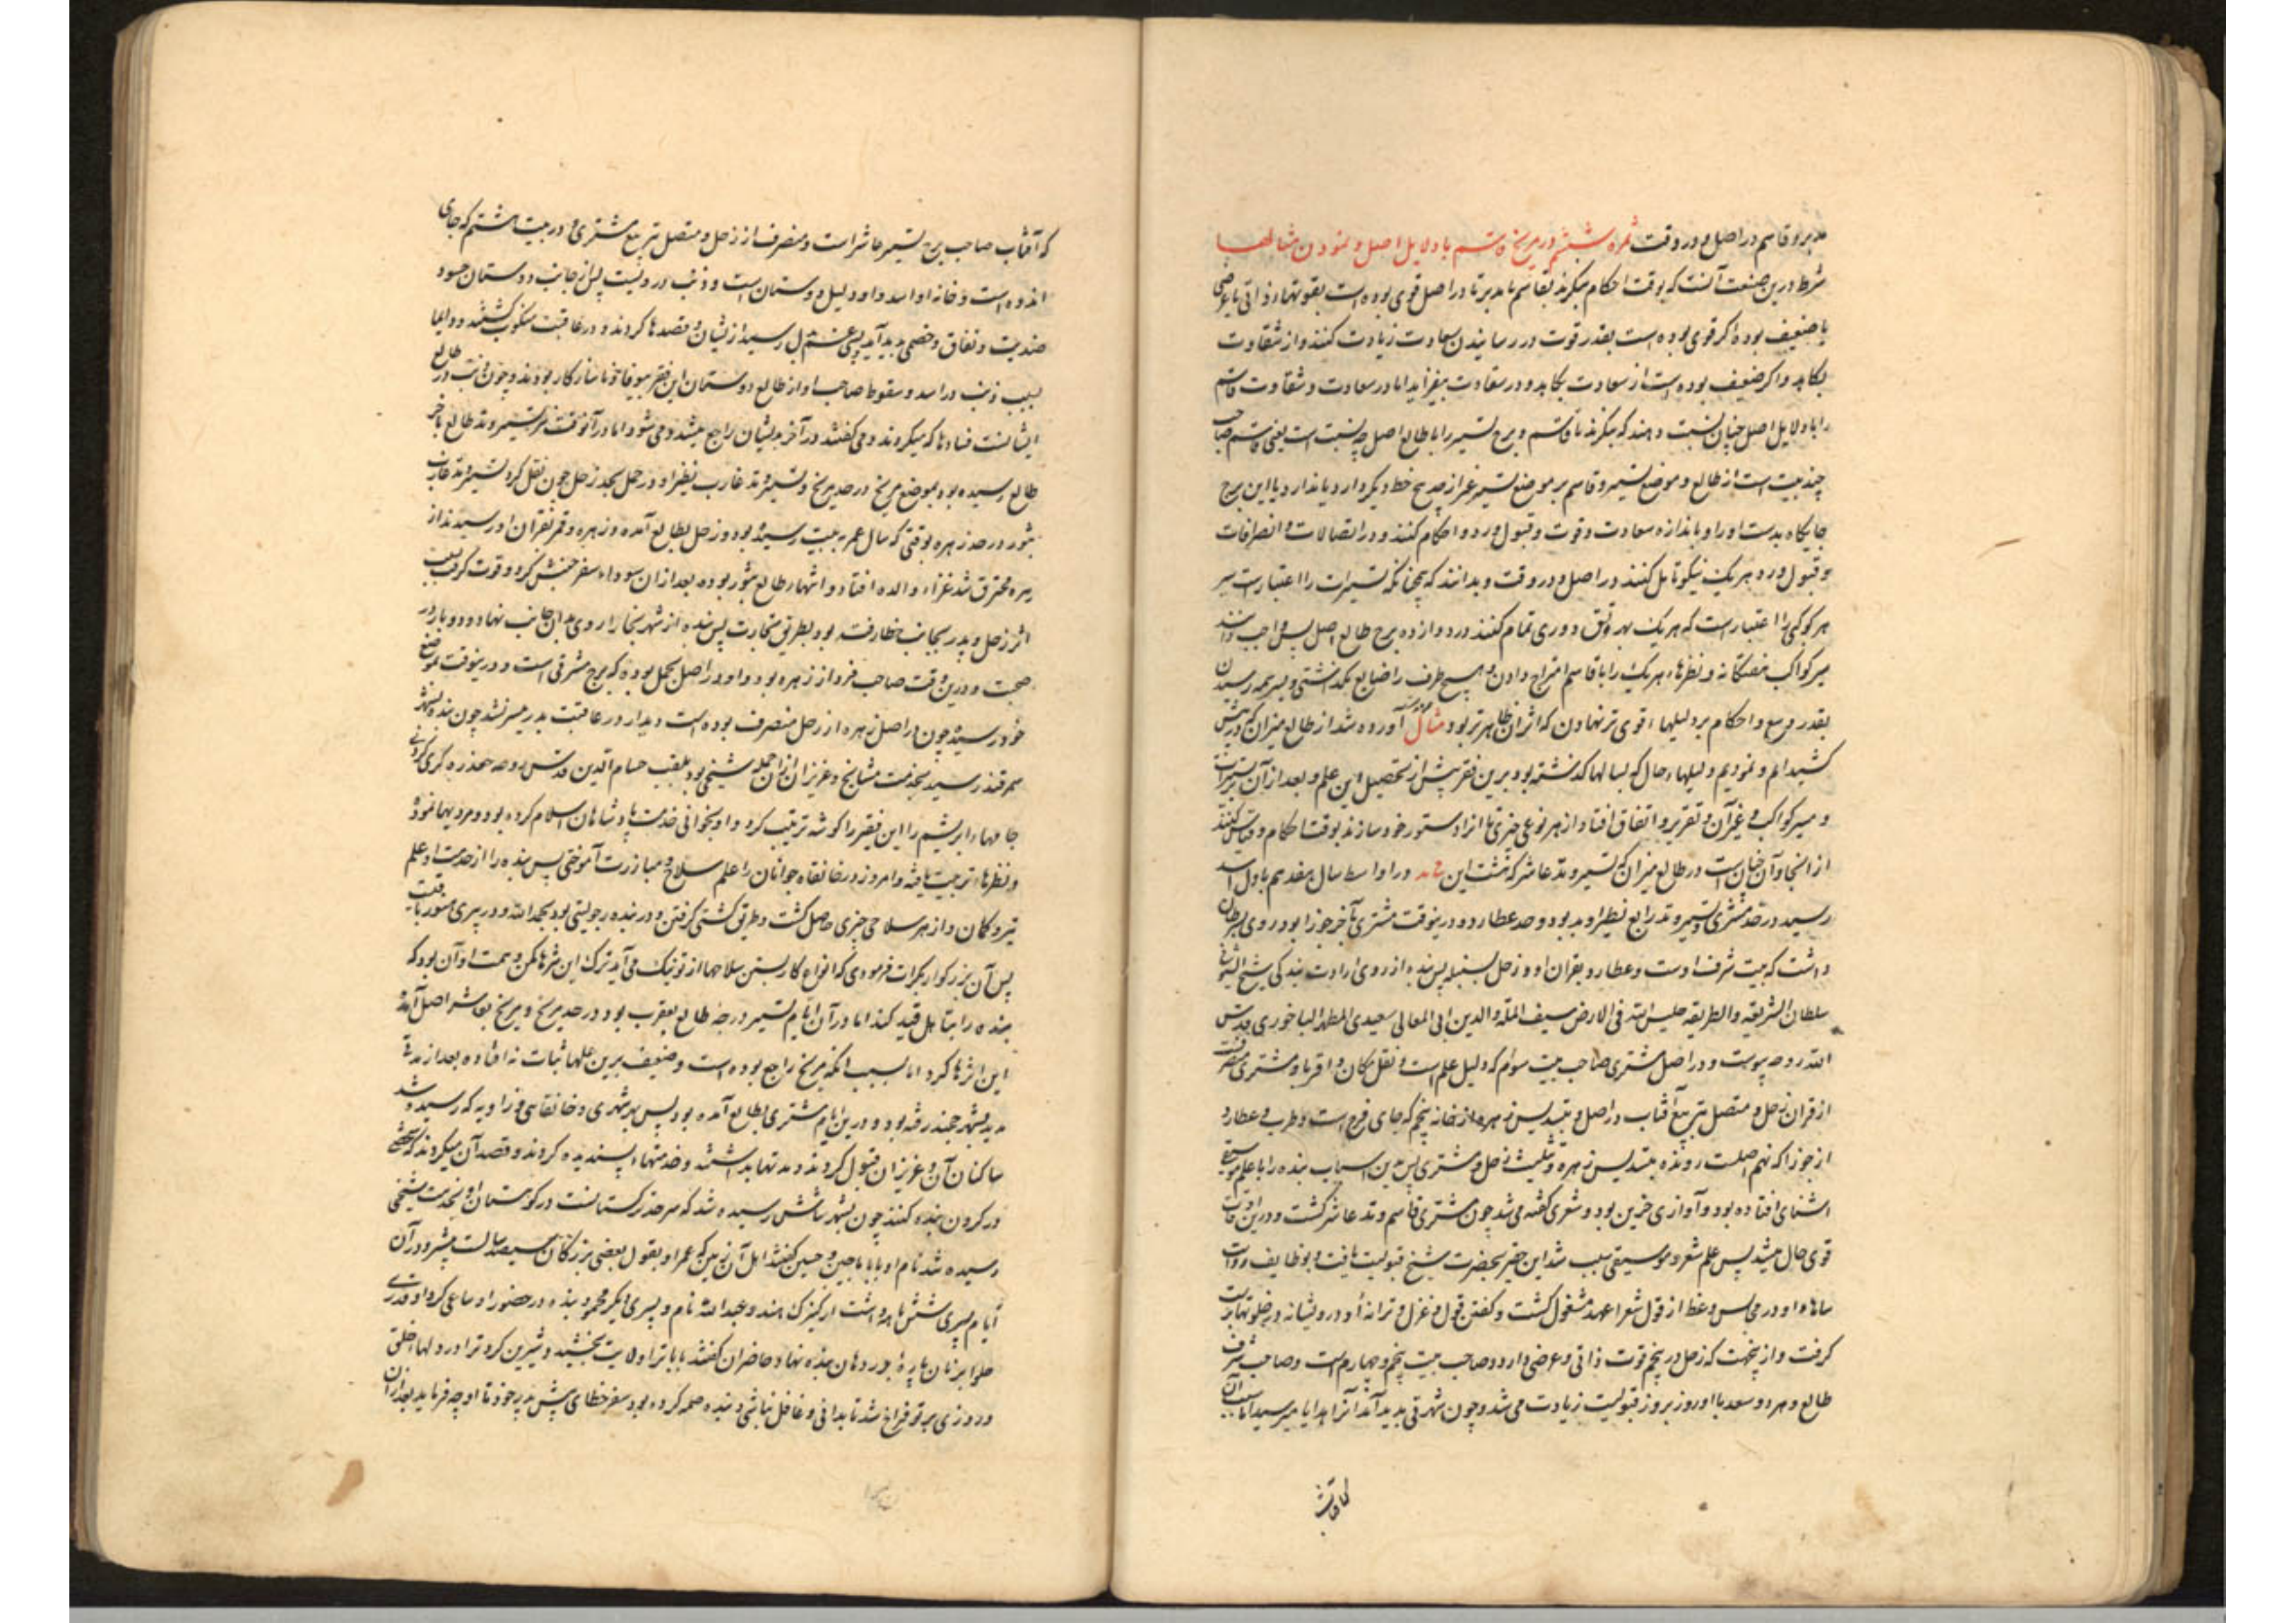 مدبر و قاسم در اصل و در وقت ثمره ششم در مزج قاسم با دلایل اصل و نمودن مثالها
شرط درین صنعت آنست که بوقت احکام بنگرند تا قاسم یا مدبر تا در اصل قوی بوده است بقوتهاء ذاتی یا عرضی
یا ضعیف بوده اگر قوی بوده است بقدر قوت در رسانیدن سعادت زیادت کنند و از شقاوت
بکاهد و اگر ضعیف بوده است از سعادت بکاهد و در شقاوت بیفزاید اما در سعادت و شقاوت قاسم
را با دلایل اصل چنان نسبت دهند که بنگرند تا قاسم و برج تسییر را با طالع اصل چه نسبت است یعنی قاسم صاحب
چند بیت است از طالع و موضع تسییر و قاسم بر موضع تسییر غیر از مزیج خط دیگر دارد یا ندارد یا این برج
جایگاه بدست او را و باندازه سعادت و قوت و قبول و رد و احکام کنند و در اتصالات و انصرافات
و قبول و رد هر یک نیکو تامل کنند در اصل و در وقت و بدانند که چنانکه تسییرات را اعتبارست سیر
هر کوکبی را اعتبار است که هر یک بهر وقتی دوری تمام کنند در دوازده برج طالع اصل پس واجب دانند
سیر کواکب هفتگانه و نظرهاء هر یک را با قاسم امتزاج دادن و هیچ طرف را ضایع نگذاشتی و بر همه رسیدن
بقدر وسع و احکام بر دلیلهاء قوی تر نهادن که اثر آن ظاهرتر بود مثال آورده شد از طالع میزان که در پیش
کشیده‌ایم و نمودیم دلیلهاء حال که بسالها گذشته بود برین فقیر پیش از تحصیل این علم و بعد از آن تسییرات
و سیر کواکب و غیر آن و تقریر و اتفاق افتاد از هر نوعی چیزی تا آنرا دستور خود سازند بوقت احکام و قیاس کنند
از اینجا و آن چنان است در طالع میزان که تسییر وتد عاشر گذشت این در اواسط سال هفدهم باول اسد
رسید در حد مشتری و تسییر وتد رابع نظیر او بدو بود و حد عطارد و درین وقت مشتری بآخر جوزا بود روی بسرطان
داشت که بیت شرف اوست و عطارد بقران او و زحل بسنبله پس بنده از روی ارادت بندگی شیخ الشیوخ
سلطان الشریعه و الطریقه جلیس الله فی الارض سیف المله و الدین ابی المعالی سعیدی المطهر الباخرزی قدس
الله روحه پیوست و در اصل مشتری صاحب بیت سوم که دلیل علم است و نقل مکان و اقربا و مشتری منصرفست
از قران زحل و متصل بتربیع آفتاب در اصل و بتسدیس زهره از خانه پنجم که جای فرح است و طرب و عطارد
از جوزا که نهم اصلست رونده بتسدیس زهره و تثلیث زحل و مشتری پس بدین اسباب بنده را با علم موسیقی
اشنای افتاده بود و آوازی حزین بود و شعری گفته می‌شد چون مشتری قاسم وتد عاشر گشت و درین اوقات
قوی حال میشد پس علم شعر و موسیقی سبب شد این حقیر بحضرت شیخ قبولیت یافت و بوظایف روات
سالهاء او در مجلس وعظ از قول شعرا عهد مشغول گشت و گفتن قول و غزل و ترانه‌ او درویشانه در خلوتها
گرفت و از پنجهت که زحل در پنجم قوت ذاتی و عرضی دارد و صاحب بیت پنجم و چهارم است و صاحب شرف
طالع و هر دو سعد با او روز بروز قبولیت زیادت می‌شد و چون شهرتی بدید آمد آنرا هدایا میرسید اما بسبب آن
که آفتاب
که آفتاب صاحب برج تسییر عاشر است و منصرف از زحل و متصل بتربیع مشتری و در بیت هشتم که جای
اندوه است و خانه او اسد و او دلیل دوستان است و ذنب در ویست پس از جانب دوستان حسود
ضدیت و نفاق و خصمی پدید آید پیش رسید از ایشان و قصدها کردند و در عاقبت منکوب گشتند و دایما
بسبب ذنب در اسد و سقوط صاحب او از طالع دوستان این فقیر بیوفا خود سازکار بودند و چون ذنب در طالع
ایشانست فسادها که میکردند و می گفتند در آخر بدیشان راجع میشد و می شود اما در آنوقت که تسییر وتد طالع بآخر
طالع رسیده بود بموضع مریخ در حد مریخ و تسییر وتد غارب نظیر او در حمل بحد زحل چون نقل کرد تسییر وتد غارب
بثور در حد زهره بوقتی که سال عمر به بیست رسیده بود و زحل بطالع آمده و زهره و قمر بقران او رسیدند از
زهره محترق شد عزاء والده افتاد و انتهاء طالع بثور بوده بعد از آن سوداء سفر جنبش کرد و قوت گرفت بسبب
اثر زحل و پدر بجانب خطا رفته بود بطریق تجارت پس بنده از شهر بخارا روی بدان جانب نهاد و دو بار در
صحبت و درین وقت صاحب فرد از زهره بود و او در اصل بحمل بوده که برج مشرقی است و درینوقت بموضع
خود رسیده چون در اصل زهره از زحل منصرف بوده است دیدار در عاقبت پدر میسر نشد چون بنده بشهر
سمرقند رسید بخدمت مشایخ و عزیزان از آن جمله شیخی بود بلقب حسام الدین قدس روحه گری کردی
جامهاء ابریشم را این فقیر را گوشه ترتیب کرد و او بخوانی خدمت پادشاهان اسلام کرده بود و مردیها نموده
و نظرها تربیت یافته و امروز در خانقاه جوانان را علم سلاح و مبارزت آموختی پس بنده را از خدمت او علم
تیر و کمان و از هر سلاحی چیزی حاصل گشت و طریق کشتی گرفتن و در بنده رجولیتی بود بحمد الله و در پیری هنوز باقیست
پس آن بزرگوار بکرات فرمودی که انواع کار بستن سلاحها از تو نیک می‌آید ترک این هنرها مکن و همت او آن بود که
بنده را بتاهل قید کند اما در آن ایام تسییر درجه طالع بعقرب بود در حد مریخ و مریخ بعاشر اصل آمده
این اثرها کرد اما بسبب آنکه مریخ راجع بوده است و ضعیف برین عملها ثبات نه افتاده بعد از مدتی
مدید بشهر خجند رفته بود و درین ایام مشتری بطالع آمده بود پس بهر شهری و خانقاهی و زاویه که رسیده شد
ساکنان آن و عزیزان قبول کردند و مدتها بداشتند و خدمتهاء پسندیده کردند و قصد آن میکردند که
در گردن بنده کنند چون بشهر شاش رسیده شد که سرحد ترکستانست در کوهستان او بخدمت شیخی
رسیده شد نام او بابا ماجین و چنین گفتند اهل آن زمین که عمر او بقول بعضی بزرگان سیصد سالست بیشتر و در آن
ایام پسری شش ماهه داشت از کنیزک هند و عبدالله نام و پسری دیگر محمود بنده در حضور او سماعی کرد او قدری
حلوا بر نان پاره در دهان بنده نهاد و حاضران گفتند بابا ترا ولایت بخشید و شیرین کرد ترا در دلها خلق
و روزی بر تو فراخ شد تا بدانی و غافل نباشی و بنده عزم کرده بود سفر خطای پیش پدر خود تا او چه فرماید بعد از آن